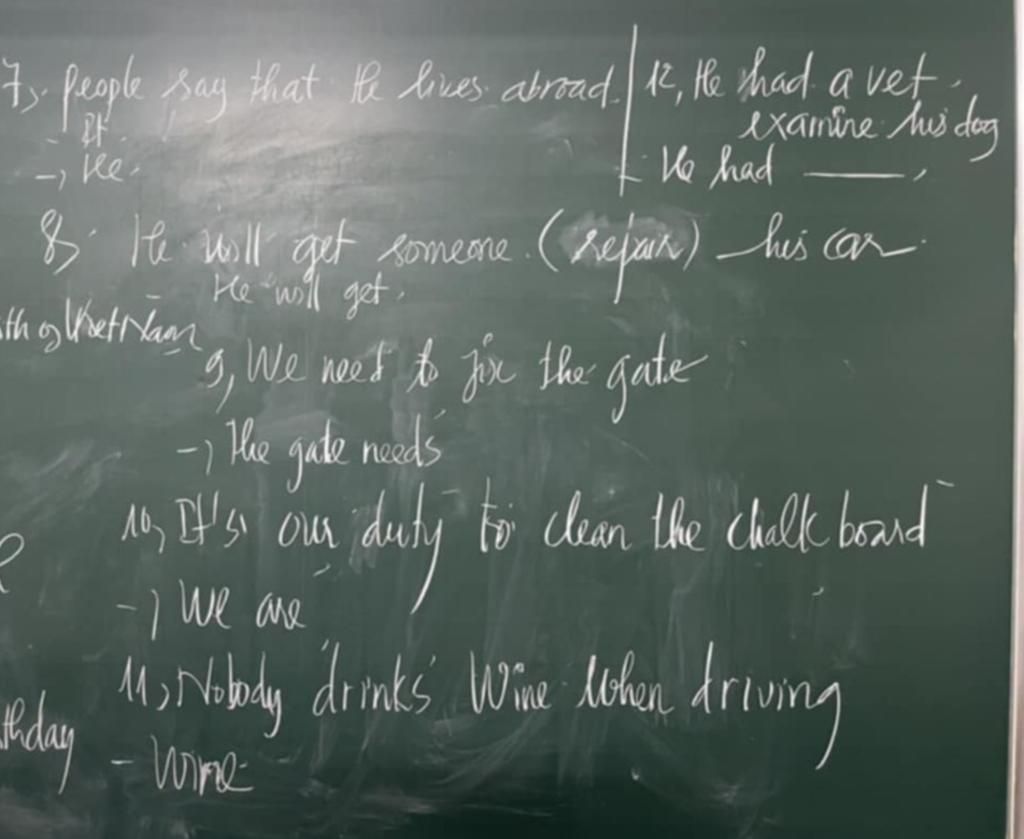 7, people say that He lives abroad.
- It
→ He
8, He will get someone (repair) his car
He will get
9, We need to fix the gate
→ The gate needs
10, It's our duty to clean the chalk board
→ We are
11, Nobody drinks Wine when driving
- Wine
12, He had a vet
examine his dog
- He had ———
of VietNam
thday